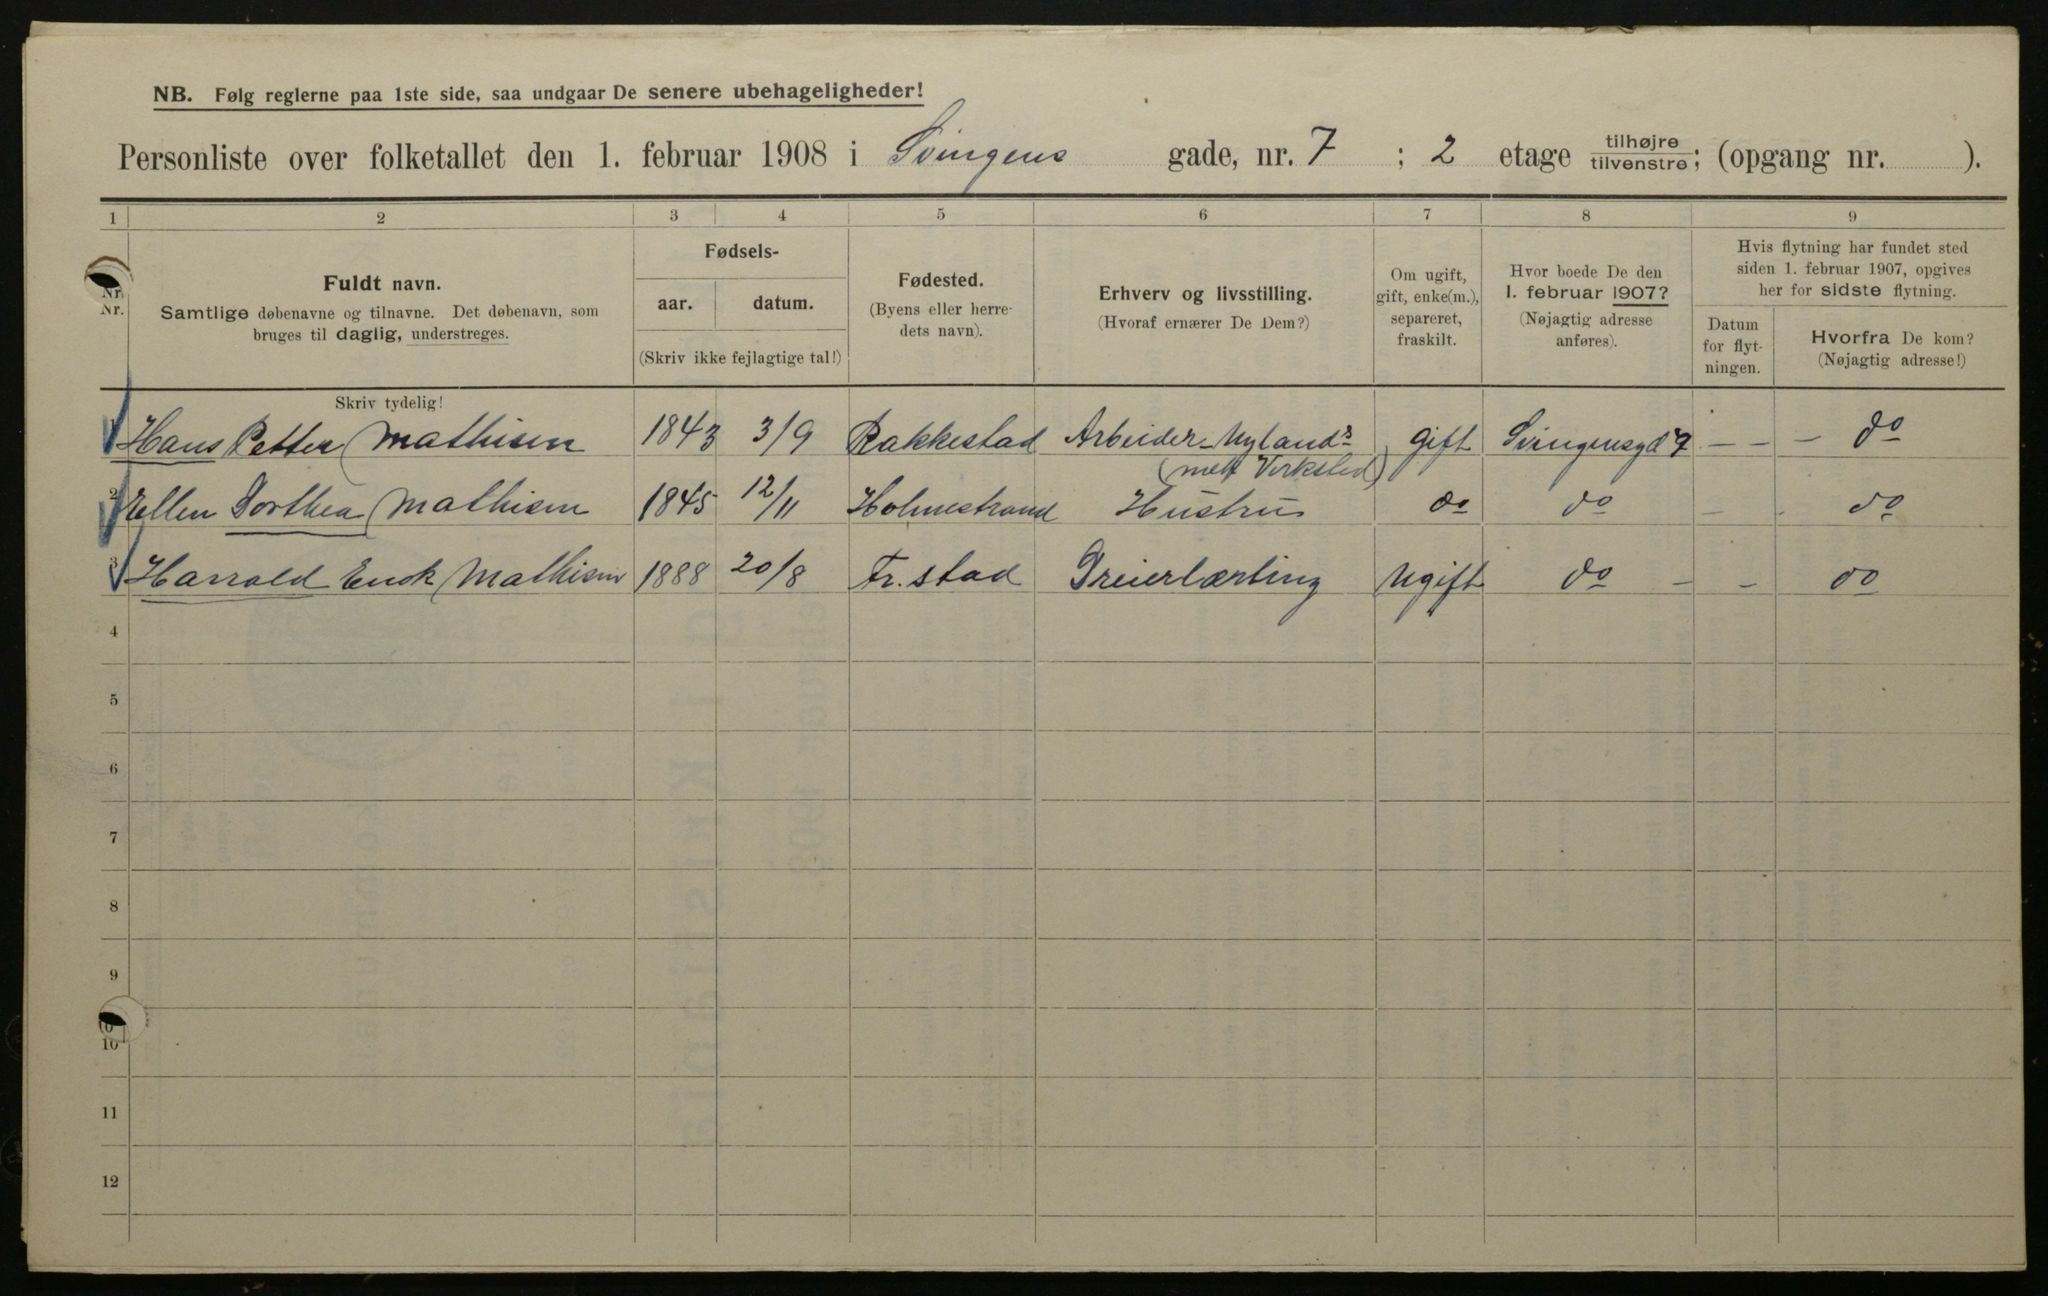 NB. Følg reglerne paa 1ste side, saa undgaar De senere ubehageligheder!
Personliste over folketallet den 1. februar 1908 i Svingens gade, nr. 7 ; 2 etage tilhøjre tilvenstre; (opgang nr. ).
1 2 3 4 5 6 7 8 9
Nr. Nr.
Fuldt navn.
Samtlige døbenavne og tilnavne. Det døbenavn, som
bruges til daglig, understreges.
Skriv tydelig!
Fødsels-
aar. datum.
(Skriv ikke fejlagtige tal!)
Fødested.
(Byens eller herre-
dets navn).
Erhverv og livsstilling.
(Hvoraf ernærer De Dem?)
Om ugift,
gift, enke(m.),
separeret,
fraskilt.
Hvor boede De den
1. februar 1907?
(Nøjagtig adresse
anføres).
Hvis flytning har fundet sted
siden 1. februar 1907, opgives
her for sidste flytning.
Datum
for flyt-
ningen.
Hvorfra De kom?
(Nøjagtig adresse!)
1 Hans Petter Mathisen 1843 3/9 Rakkestad Arbeider - Nylands gift Svingensgd 7 — — — do
(mek Verksted)
2 Ellen Dorthea Mathisen 1845 12/11 Holmestrand Hustru do do - - do
3 Harrald Enok Mathisen 1888 20/8 Fr. stad Dreierlærling Ugift do - - do
4
5
6
7
8
9
10
11
12